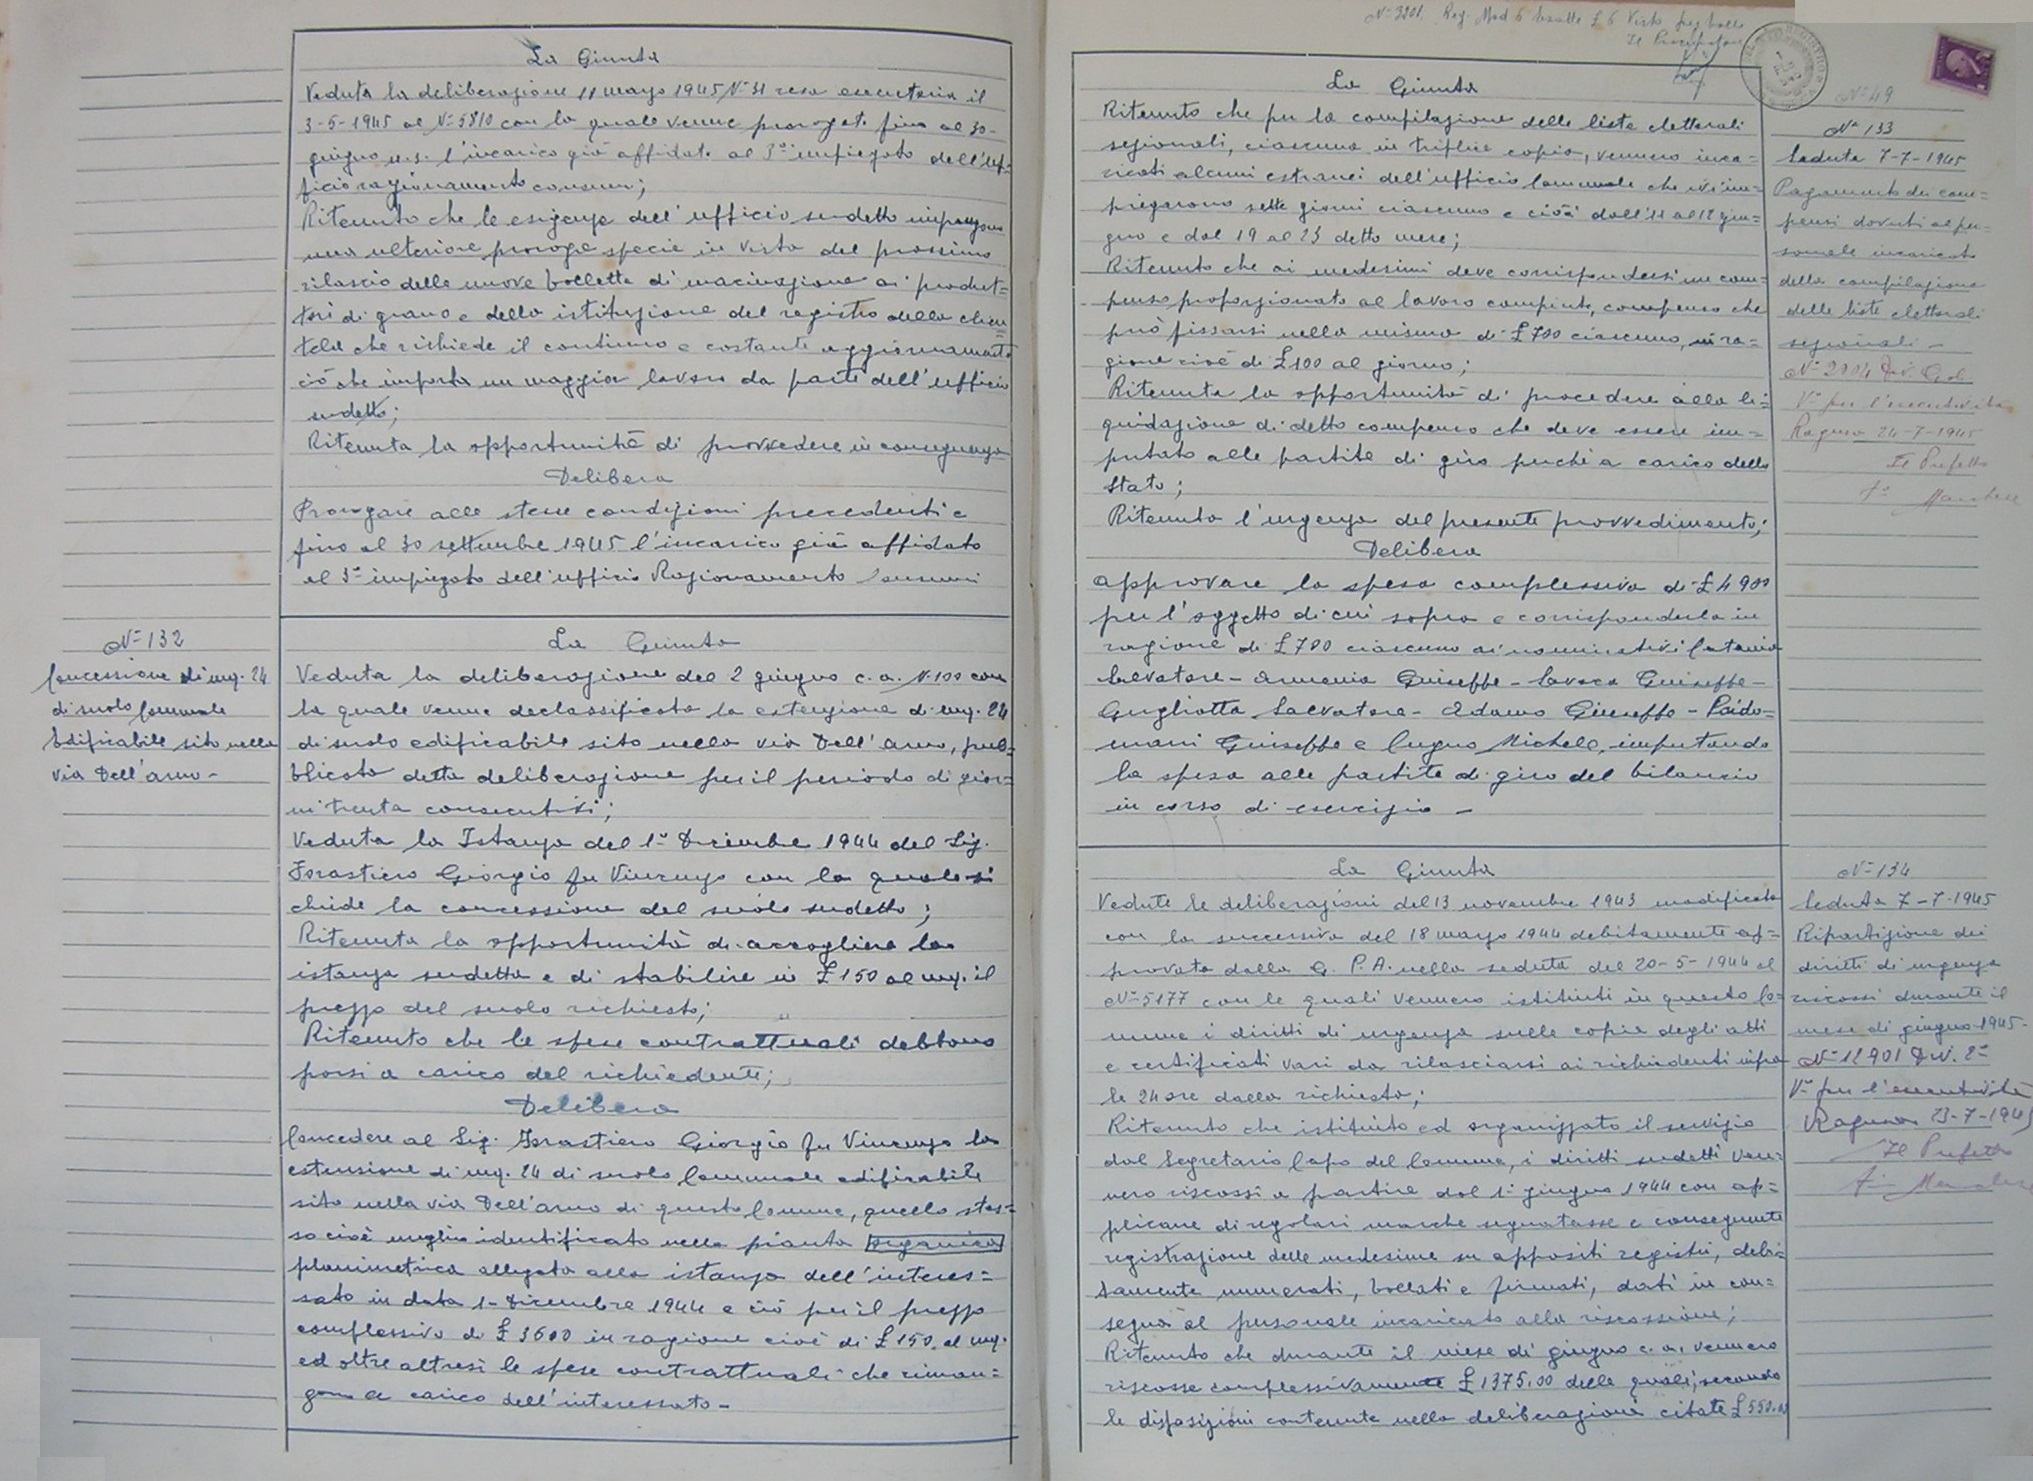 La Giunta
Veduta la deliberazione 11 marzo 1945 N° 31 resa esecutoria il
3-5-1945 al N° 5810 con la quale venne prorogata fino al 30
giugno u.s. l'incarico già affidato al 3° impiegato dell'uf-
ficio razionamento consumi;
Ritenuto che le esigenze dell'ufficio sudetto impongono
una ulteriore proroga specie in vista del prossimo
rilascio delle nuove bollette di macinazione ai produt=
tori di grano e della istituzione del registro della clien
tela che richiede il continuo e costante aggiornamento
ciò che importa un maggior lavoro da parte dell'ufficio
sudetto;
Ritenuta la opportunità di provvedere in conseguenza
Delibera
Prorogare alle stesse condizioni precedenti e
fino al 30 settembre 1945 l'incarico già affidato
al 3° impiegato dell'ufficio Razionamento Consumi
N° 132
Concessione di mq. 24
di suolo Comunale
Edificabile sito nella
via Dell'arno -
La Giunta
Veduta la deliberazione del 2 giugno c. a. N. 100 con
la quale venne declassificata la estenzione di mq. 24
di suolo edificabile sito nella via Dell'arno, pub=
blicata detta deliberazione per il periodo di gior=
ni trenta consecutivi;
Veduta la Istanza del 1° Dicembre 1944 del Sig.
Forastiero Giorgio fu Vincenzo con la quale si
chiede la concessione del suolo sudetto;
Ritenuta la opportunità di accogliere la
istanza sudetta e di stabilire in £ 150 al mq. il
prezzo del suolo richiesto;
Ritenuto che le spese contrattuali debbono
porsi a carico del richiedente;
Delibera
Concedere al Sig. Forastiero Giorgio fu Vincenzo la
estensione di mq. 24 di suolo Comunale edificabile
sito nella via Dell'arno di questo Comune, quello stes=
so cioè meglio identificato nella pianta organica
planimetrica allegata alla istanza dell'interes=
sato in data 1- Dicembre 1944 e ciò per il prezzo
complessivo di £ 3600 in ragione cioè di £ 150 al mq.
ed oltre altresì le spese contrattuali che riman=
gono a carico dell'interessato -
N° 3201. Reg. Mod 6 Esatte £ 6 Visto per bollo
Il Procuratore
La Giunta
Ritenuto che per la compilazione delle liste elettorali
sezionali, ciascuna in triplice copia, vennero inca=
ricati alcuni estranei dell'ufficio Comunale che vi im=
piegarono sette giorni ciascuno e cioè dall'11 al 12 giu=
gno e dal 19 al 23 detto mese;
Ritenuto che ai medesimi deve corrispondersi un com=
penso proporzionato al lavoro compiuto, compenso che
può fissarsi nella misura di £ 700 ciascuno, in ra=
gione cioè di £ 100 al giorno;
Ritenuta la opportunità di procedere alla li=
quidazione di detto compenso che deve essere im=
putato alle partite di giro perchè a carico dello
Stato;
Ritenuta l'urgenza del presente provvedimento;
Delibera
approvare la spesa complessiva di £ 4900
per l'oggetto di cui sopra e corrisponderla in
ragione di £ 700 ciascuno ai nominativi Catania
Salvatore - Armenia Guiseffe - Savoca Guiseffe -
Gugliotta Salvatore - Adamo Giuseffe - Poido=
mani Guiseffe e Cugno Michele, imputando
la spesa alle partite di giro del bilancio
in corso di esercizio -
N° 49
N° 133
Seduta 7-7-1945
Pagamento dei com=
pensi dovuti al per=
sonale incaricato
della compilazione
delle liste elettorali
sezionali -
N° 2904 Div. Gab
V° per l'esecutività
Ragusa 24-7-1945
Il Prefetto
La Giunta
Vedute le deliberazioni del 13 novembre 1943 modificata
con la successiva del 18 marzo 1944 debitamente ap=
provata dalla G. P. A. nella seduta del 20-5-1944 al
N° 5177 con le quali vennero istituiti in questo Co=
mune i diritti di urgenza sulle copie degli atti
e certificati vari da rilasciarsi ai richiedenti infra
le 24 ore dalla richiesta;
Ritenuto che istituito ed organizzato il servizio
dal Segretario Capo del Comune, i diritti sudetti ven=
nero riscossi a partire dal 1° giugno 1944 con ap=
plicane di regolari marche segnatasse e conseguente
registrazione delle medesime su appositi registri, debi=
tamente numerati, bollati e firmati, dati in con=
segna al personale incaricato alla riscossione;
Ritenuto che durante il mese di giugno c. a. vennero
riscosse complessivamente £ 1375.00 delle quali, secondo
le disposizioni contenute nella deliberazione citate £ 550.00
N° 134
Seduta 7-7-1945
Ripartizione dei
diritti di urgenza
riscossi durante il
mese di giugno 1945-
N° 12901 Div. 2ª
V° per l'esecutività
Ragusa 23-7-1945
Il Prefetto